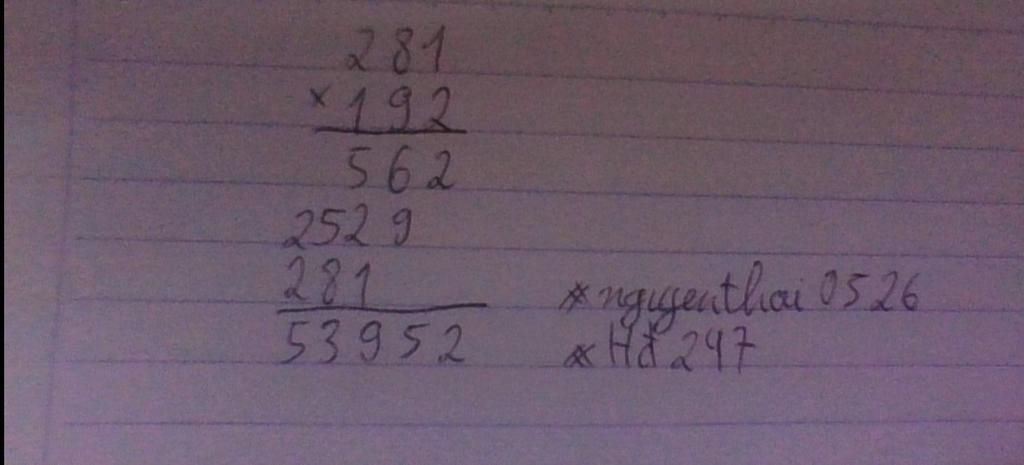 281
× 192
562
2529
281
53952
* nguyenthai 0526
* Hđ 247